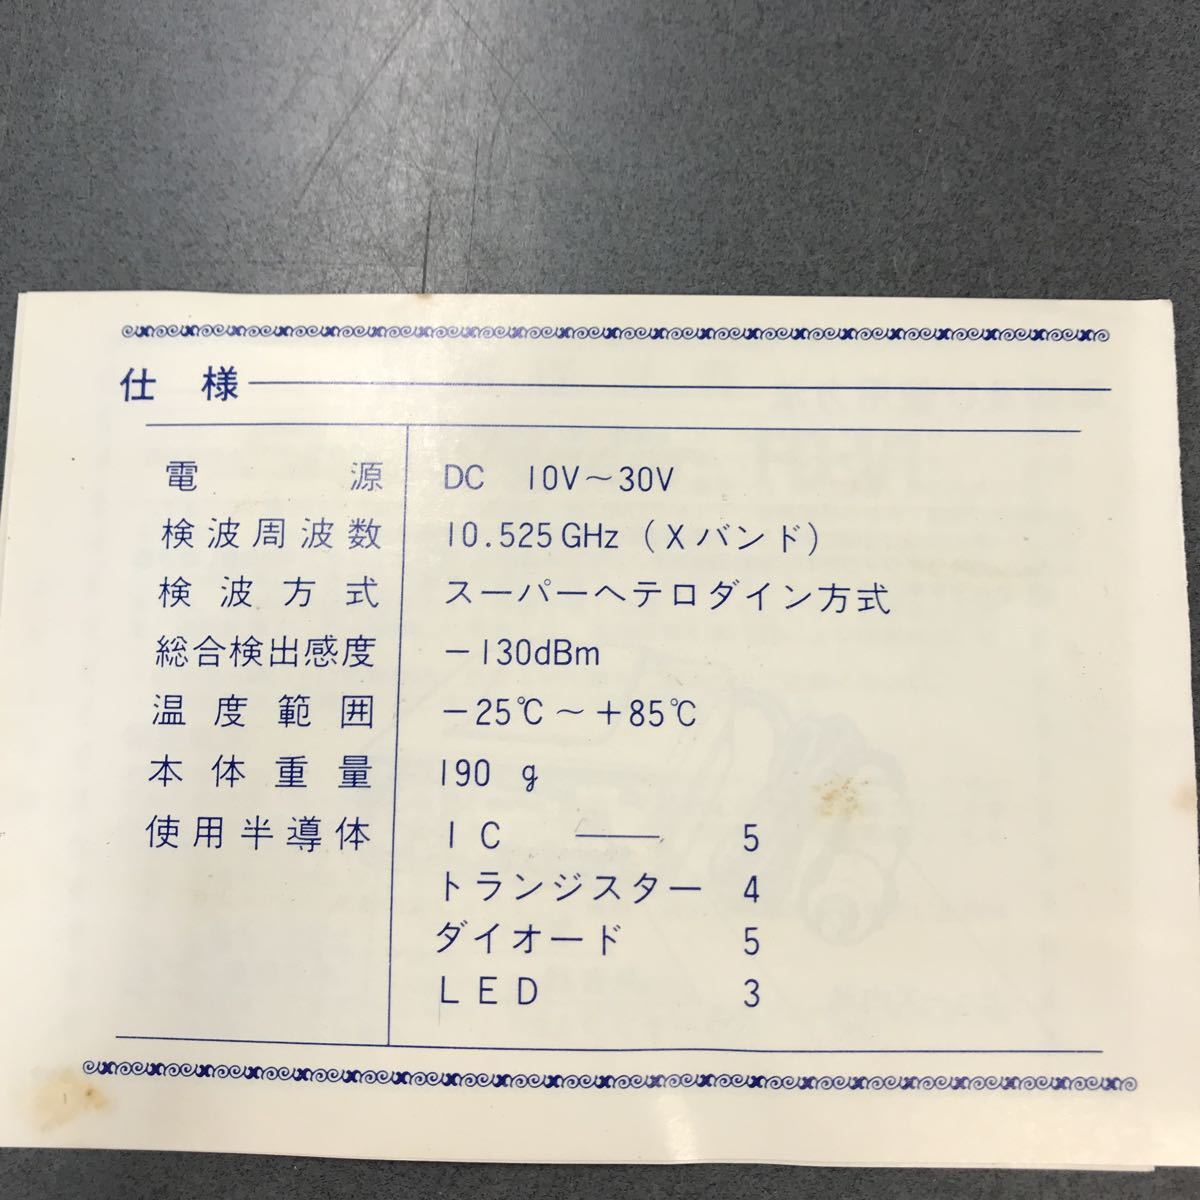 仕様
電源 DC 10V～30V
検波周波数 10.525GHz（Xバンド）
検波方式 スーパーヘテロダイン方式
総合検出感度 －130dBm
温度範囲 －25℃～＋85℃
本体重量 190 g
使用半導体 IC ── 5
トランジスター 4
ダイオード 5
LED 3